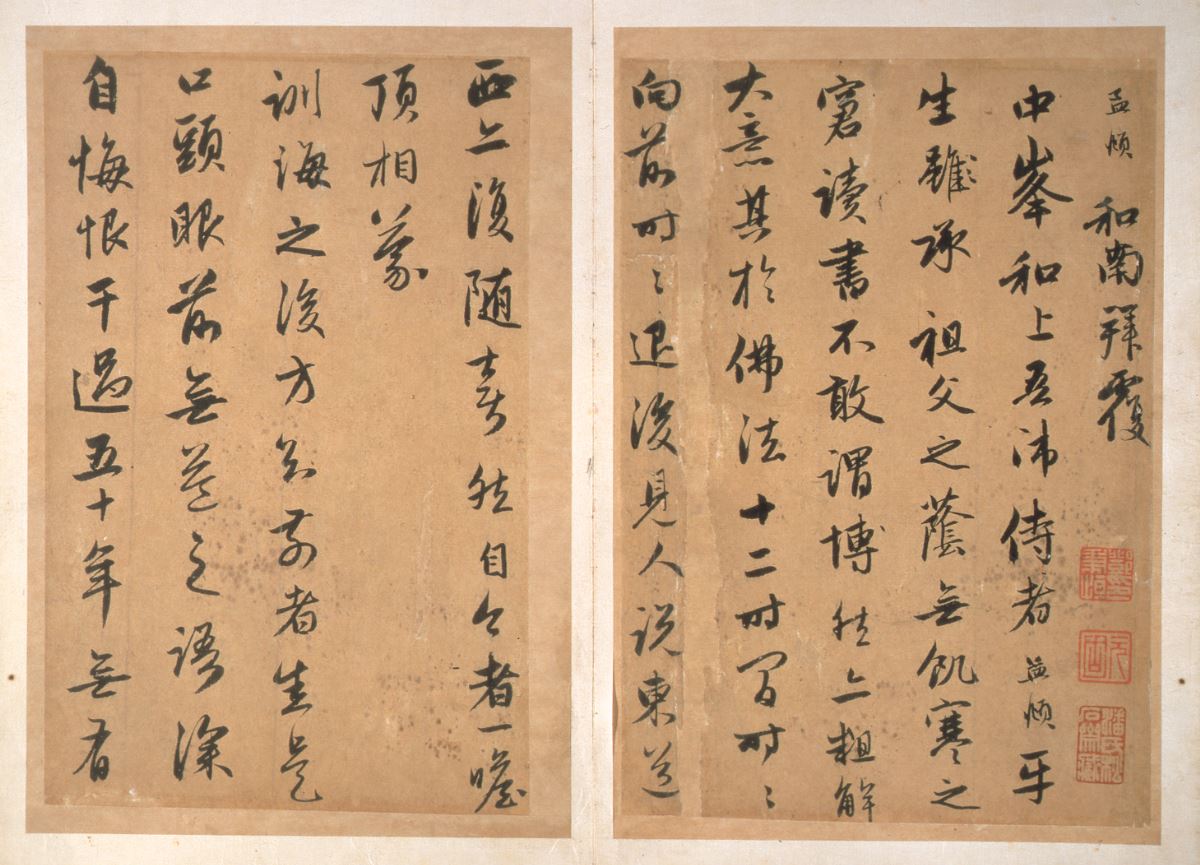 孟頫 和南拜覆
中峯和上吾師侍者 孟頫平
生雖承 祖父之蔭無飢寒之
窘讀書不敢謂博然亦粗解
大意其於佛法十二時間時〻
向前時〻退後見人說東道
西亦復隨喜然自今者一瞻
頂相蒙
訓誨之後方知前者生是
口頭眼前無益之語深
自悔恨干過五十年無有